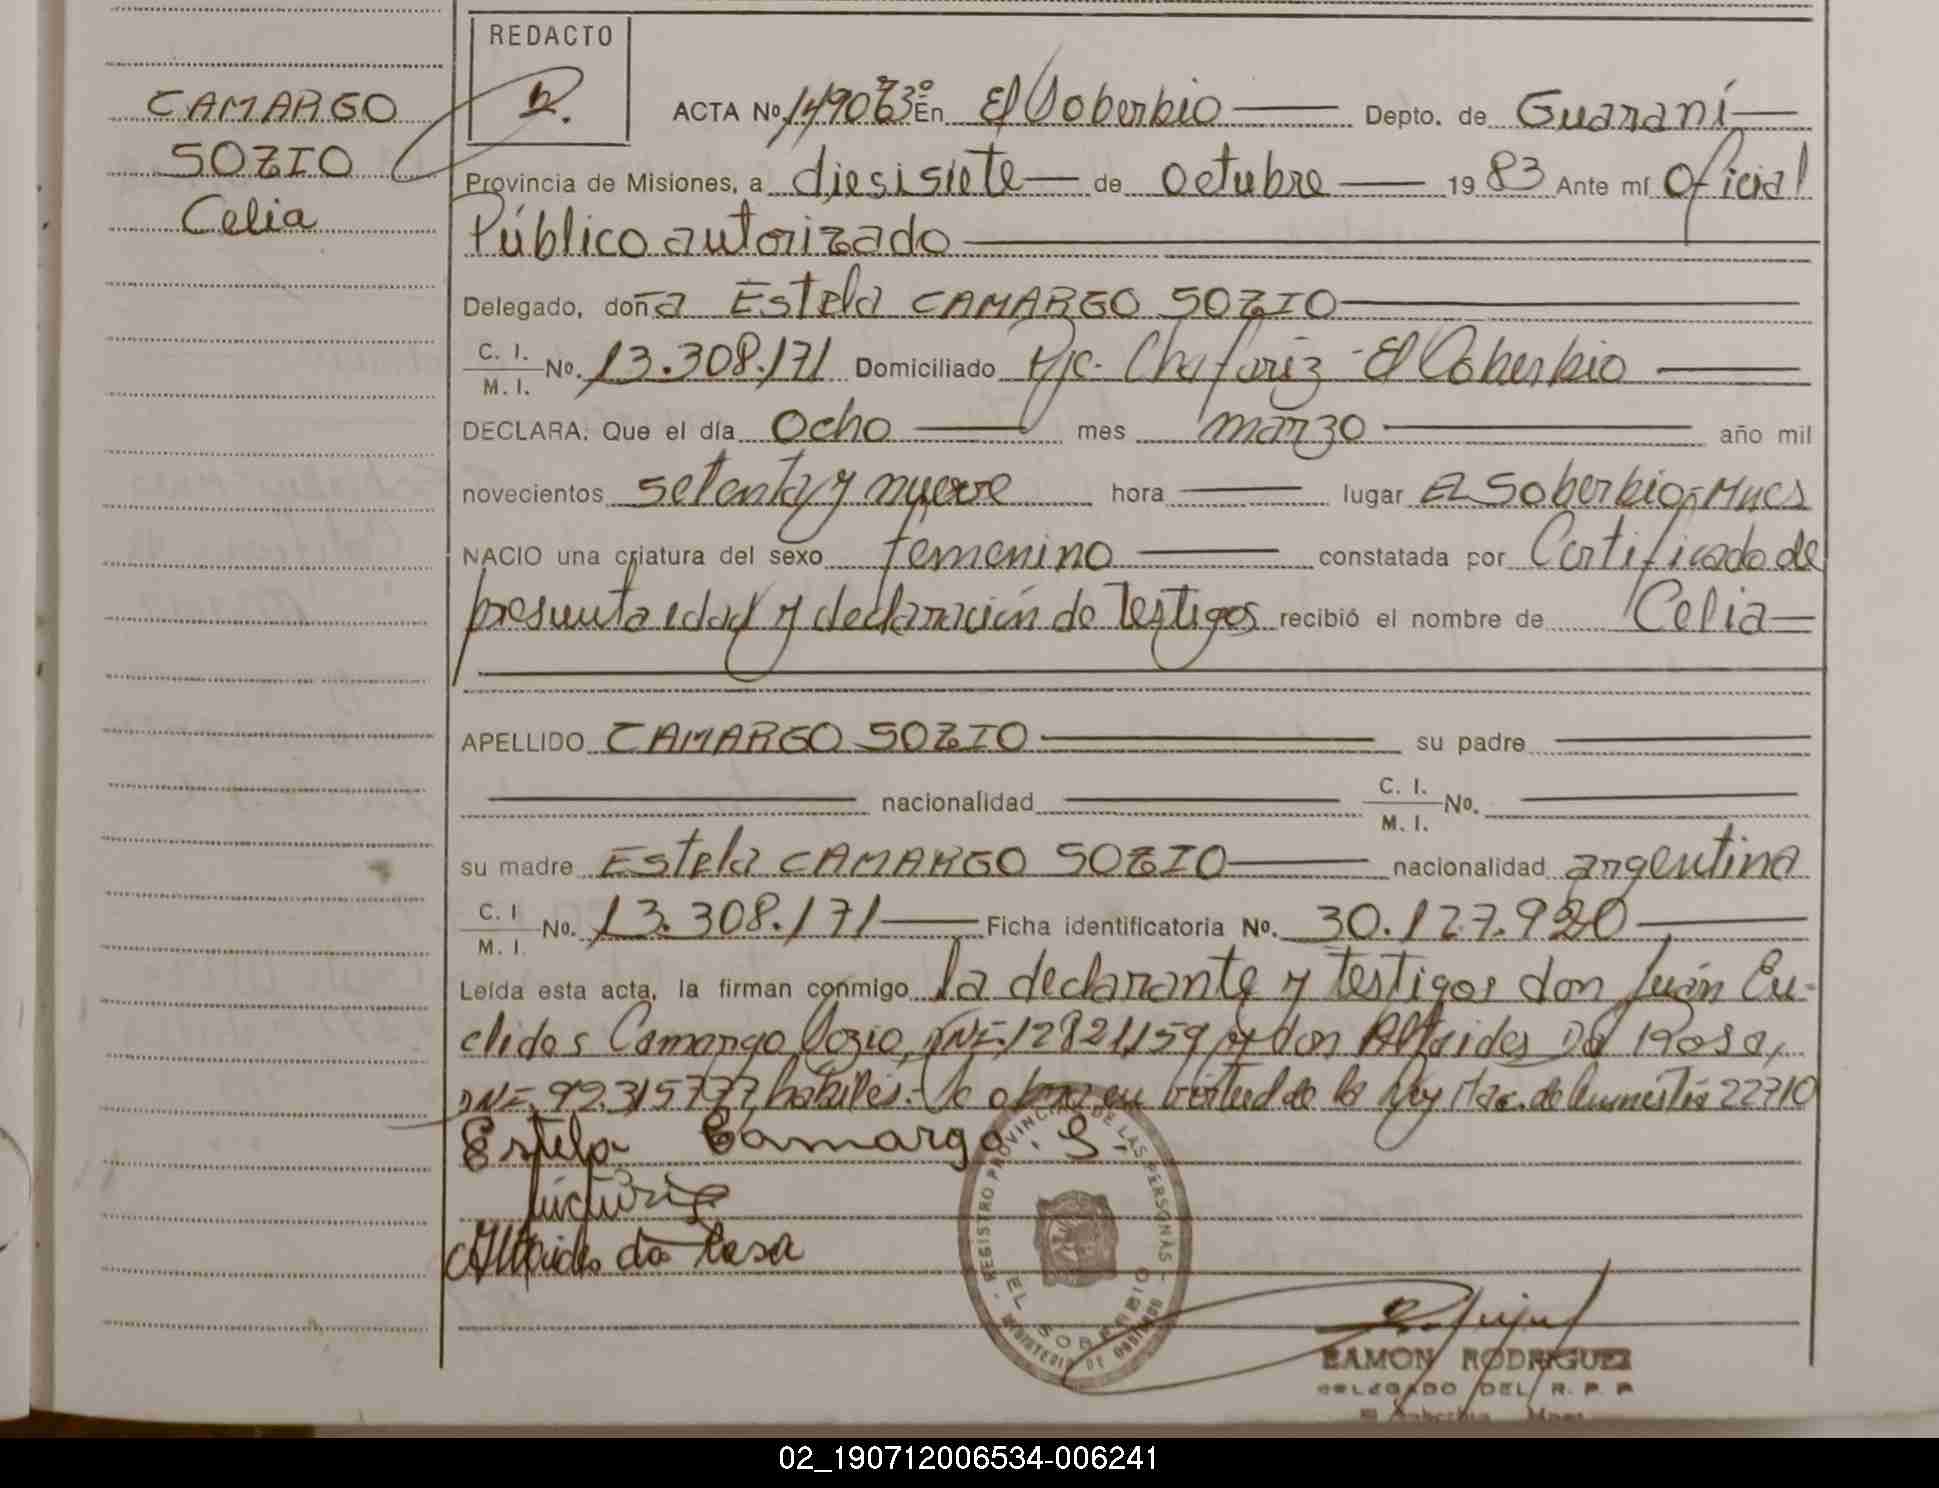 REDACTO
CAMARGO
SOZIO
Celia
ACTA No. En El Soberbio Depto. de Guaraní
Provincia de Misiones, a diesisiete de octubre 19 83 Ante mí Oficial
Público autorizado
Delegado, doña Estela CAMARGO SOZIO
C. I.
M. I. No. 13.308.171 Domiciliado Pje. Chafariz - El Soberbio
DECLARA: Que el día ocho mes marzo año mil
novecientos setenta y nueve hora lugar El Soberbio, Mnes
NACIO una criatura del sexo femenino constatada por Certificado de
presunta edad y declaración de Testigos recibió el nombre de Celia
APELLIDO CAMARGO SOZIO su padre
nacionalidad C. I.
M. I. No.
su madre Estela CAMARGO SOZIO nacionalidad argentina
C. I
M. I. No. 13.308.171 Ficha identificatoria No. 30.127.920
Leída esta acta, la firman conmigo la declarante y testigos don Juán Eu-
clides Camargo Sozio, DNI. 12821159 y don Altaides Da Rosa,
DNI. 92.315777 habiles.- Se obra en virtud de la Ley Nac. de Amnistía 22710
Estela Camargo. S.
Altaides da Rosa
REGISTRO PROVINCIAL DE LAS PERSONAS
EL SOBERBIO
MINISTERIO DE GOBIERNO
RAMON RODRIGUEZ
DELEGADO DEL R. P. P
El Soberbio Mnes
02_190712006534-006241